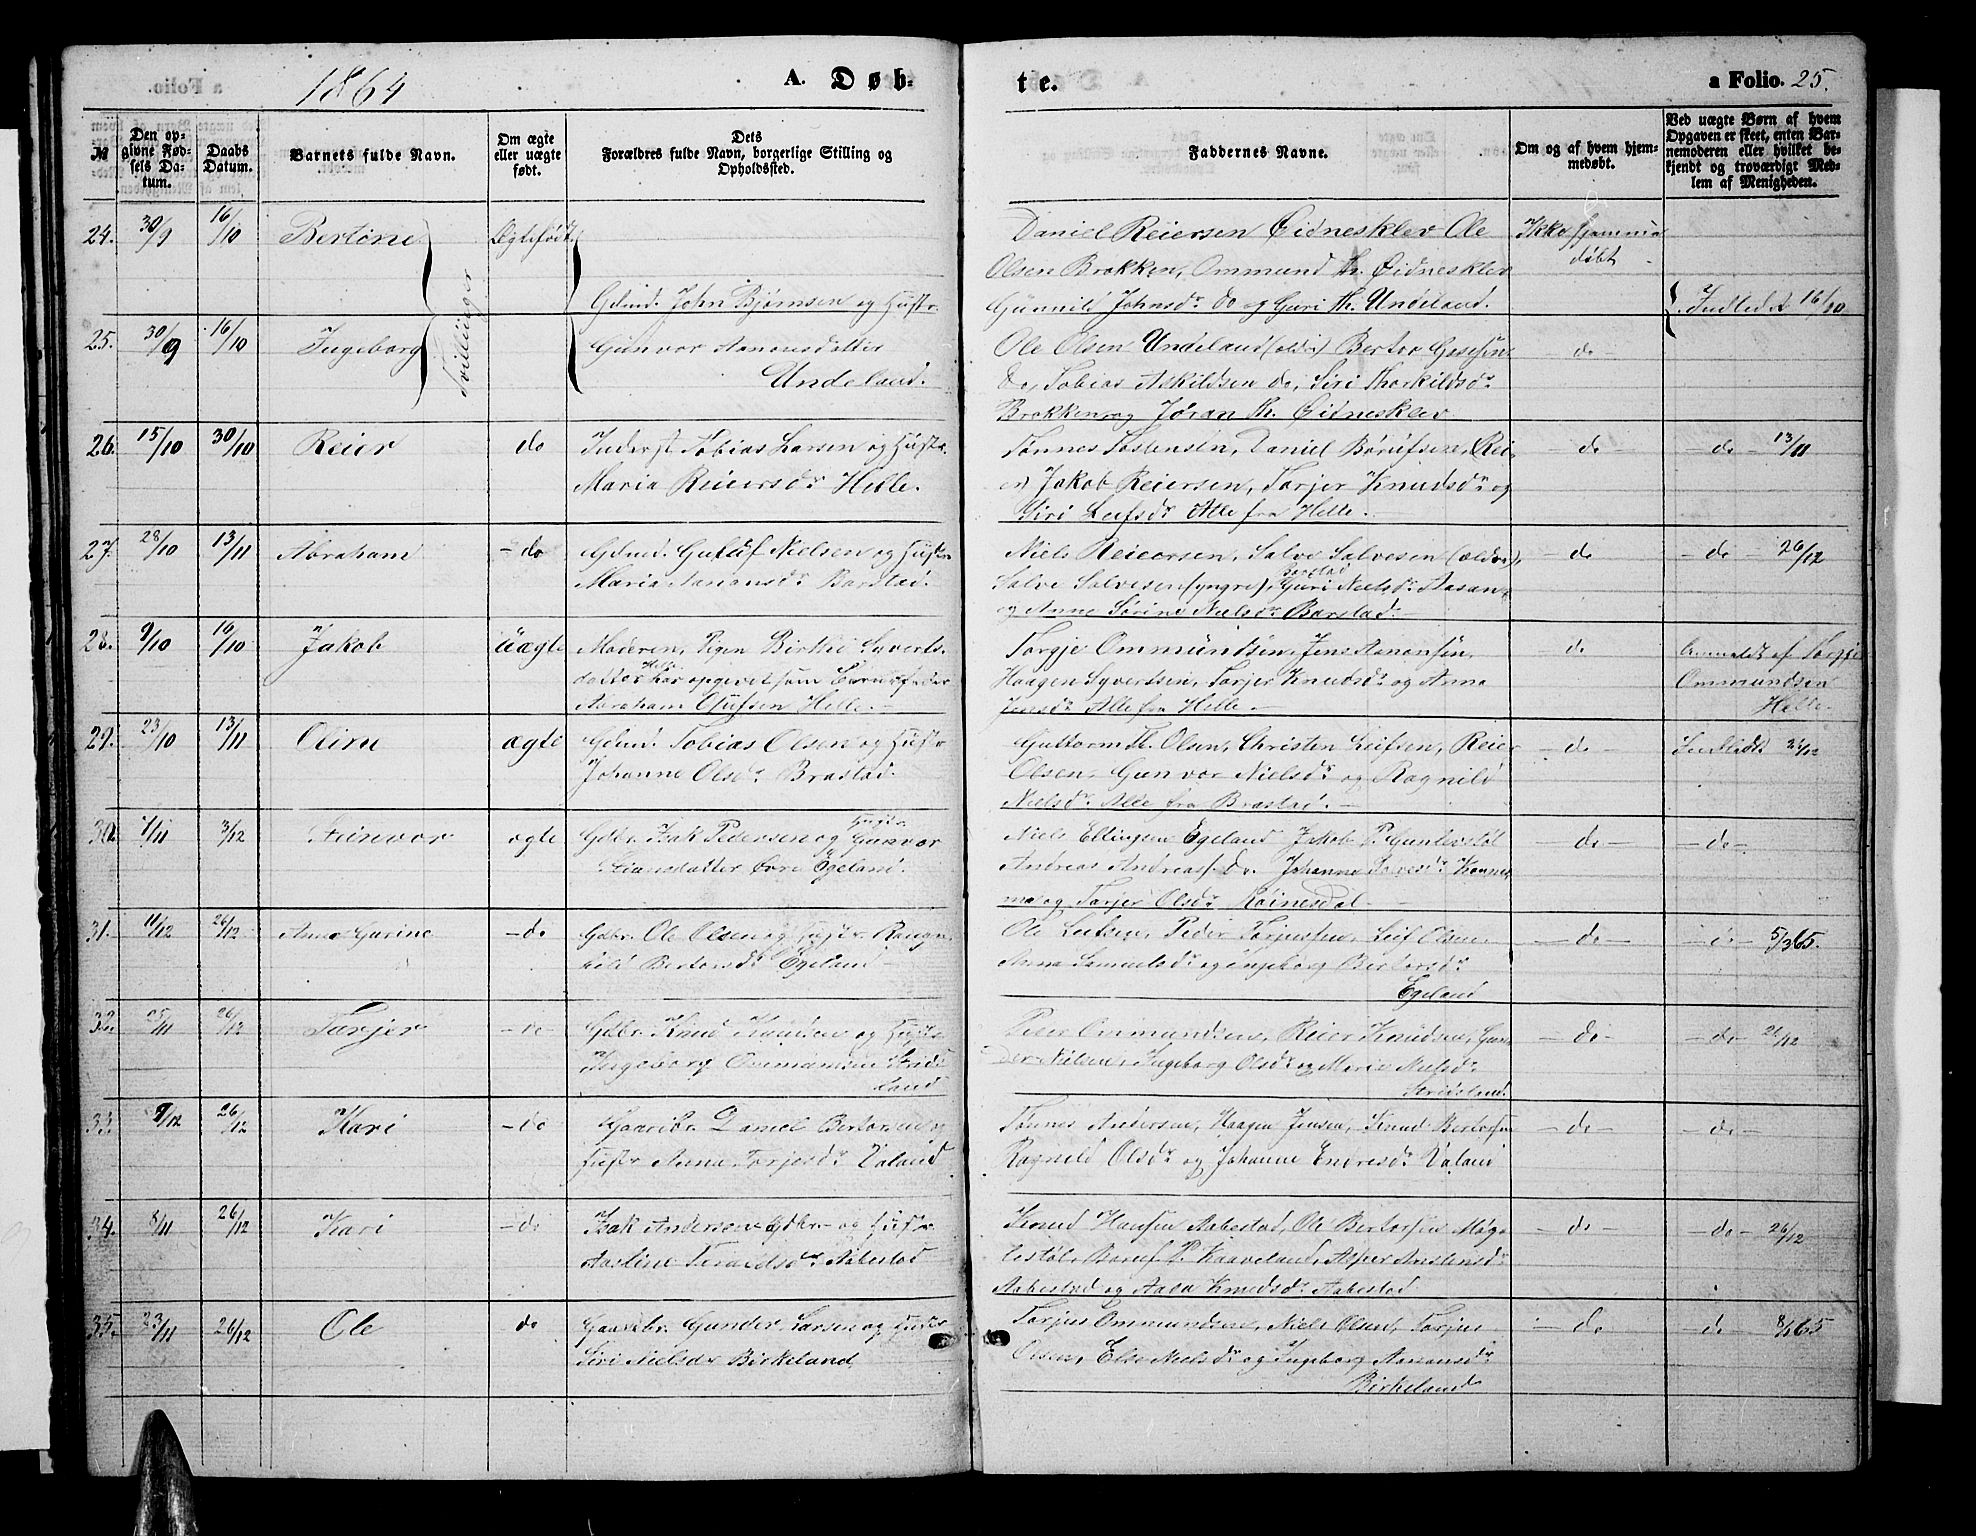 1864
A. Døb-
te.
a Folio. 25.
№
Den op-
givne Fød-
sels Da-
tum.
Daabs
Datum.
Barnets fulde Navn.
Om ægte
eller uægte
født.
Dets
Forældres fulde Navn, borgerlige Stilling og
Opholdssted.
Faddernes Navne.
Om og af hvem hjem-
medøbt.
Ved uægte Børn af hvem
Opgaven er skeet, enten Bar-
nemoderen eller hvilket be-
kjendt og troværdigt Med-
lem af Menigheden.
24. 30/9 16/10 Bertine Ægtefødt
Tvillinger
Gdmd. John Bjørnsen og Hustr.
Daniel Reiersen Eidnesklev Ole
Olsen Brokken, Ommund Th. Eidnesklev
Gunnild Johnsdr do og Guri Th. Undeland.
Ikke hjemme
døbt
Indledet 16/10
25. 30/9 16/10 Ingeborg
Gunvor Aanonsdatter
Undeland.
Ole Olsen Undeland (ældre) Berter
do, Tobias Askildsen do, Siri Thorkildsdr
Brokken og Jøran Th. Eidnesklev
do
26. 15/10 30/10 Reier do
Inderst Tobias Larsen og Hustr.
Maria Reiersdr Helle.
Tønnes Tostensen, Daniel Børufsen, Rei
er, Jakob Reiersen, Torjer Knudsdr og
Siri Leifsdr Alle fra Helle.
- do - - do - 13/11
27. 28/10 13/11 Abraham - do
Gdmd. Guttuf Nielsen og Hustr.
Maria Aanonsdr Barstad.
Niels Reiersen, Salve Salvesen (ældre),
Salve Salvesen (yngre), Barstad Guri Nielsdr Aasan
og Anne Sørine Nielsdr Barstad.
- do - do - 26/12
28. 9/10 16/10 Jakob Uægte
Moderen, Pigen Birthe Syverts-
datter Helle har opgivet som Barnefader
Abraham Olufsen Helle. -
Torgje Ommundsen, Jens Aanonsen,
Haagen Syvertsen, Torjer Knudsdr og Anna
Jensdr Alle fra Helle. -
do
Anmeldt af Torgje
Ommundsen
Helle.
29. 23/10 13/11 Oline ægte
Gdmd. Tobias Olsen og Hustr
Johanne Olsdr Brastad.
Guttorm Th. Olsen, Christen Leifsen, Reier
Olsen, Gunvor Nielsdr og Ragnild
Nielsdr Alle fra Brastad. -
- do - Indledt /12
30. /11 3/12 ægte
Gdbr. Isak Pedersen og Hustr. Gunvor
Øvre Egeland.
Niels Ellingsen Egeland Jakob P. Gunlevstøl
Andreas Andreas. do. Johanne Salvesdr
og Torjer Olsdr -
- do - - do -
31. 11/12 26/12 Anne Gurine - do
Gdbr. Ole Olsen og Hustr. Rang-
nild Bertorsdr Egeland -
Ole Leifsen, Peder Torjussen, Leif Olsen,
Anna Samuelsdr og Ingeborg Bertorsdr
Egeland
- do - - do - 5/3 65.
32. 25/11 26/12 Torjer - do
Gdbr. Knud Knudsen og Hustr.
Ingeborg Ommundsen
land
Peder Ommundsen, Reier Knudsen, Gun
der Nielsen, Ingeborg Olsdr og Marie Nielsdr
- do - - do - 26/12
33. 9/12 26/12 Kari - do
Gaardbr. Daniel Bertorsen og
Hustr Anna Torjersdr Valand
Tønnes Andersen, Haagen Jensen, Knud Bertorsen
Ragnild Olsdr og Johanne Endresdr Valand
- do - - do -
34. 8/11 26/12 Kari - do
Isak Andersen Gdbr - og Hustr
Aasline Aabestad
Knud Hansen Aabestad, Ole Bertorsen Møg-
lestøl, Børuf P. Kaaveland, Asper
Aabestad og Aasa Knudsdr Aabestad
- do - - do - 26/12
35. 23/11 26/12 Ole do
Gaardbr. Gunder Larsen og Hustr
Siri Nielsdr Birkeland
Torjus Ommundsen, Niels Olsen, Torjus
Olsen, Else Nielsdr og Ingeborg Aanonsdr
Birkeland
- do do - 65